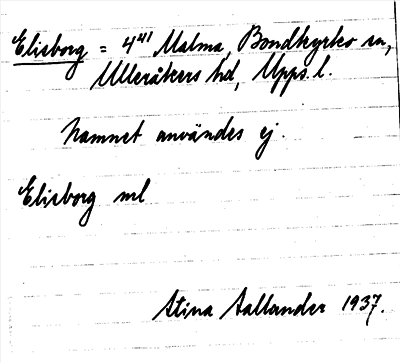 Elisborg = 4⁴¹ Malma, Bondkyrko sn,
Ulleråkers hd, Upps. l.
Namnet användes ej.
Elisborg ml
Stina Sallander 1937.